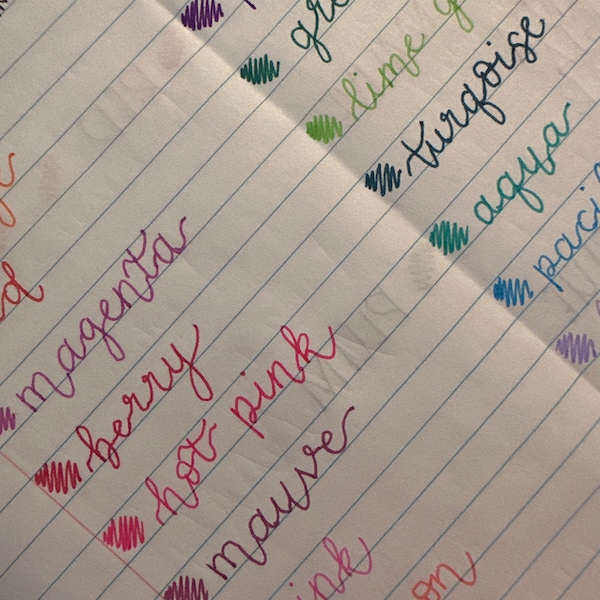 gre
lime g
turqoise
aqua
paci
magenta
berry
hot pink
mauve
ink
on